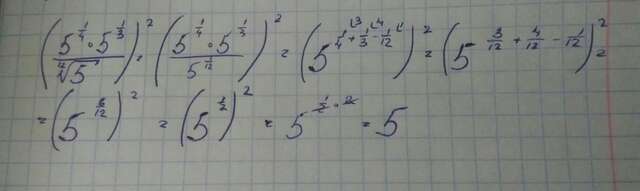 (5^{1/4} · 5^{1/3} / \sqrt[12]{5})^2 = (5^{1/4} · 5^{1/3} / 5^{1/12})^2 = (5^{1/4 + 1/3 - 1/12})^2 = (5^{3/12 + 4/12 - 1/12})^2 =
= (5^{6/12})^2 = (5^{1/2})^2 = 5^{1/2 · 2} = 5